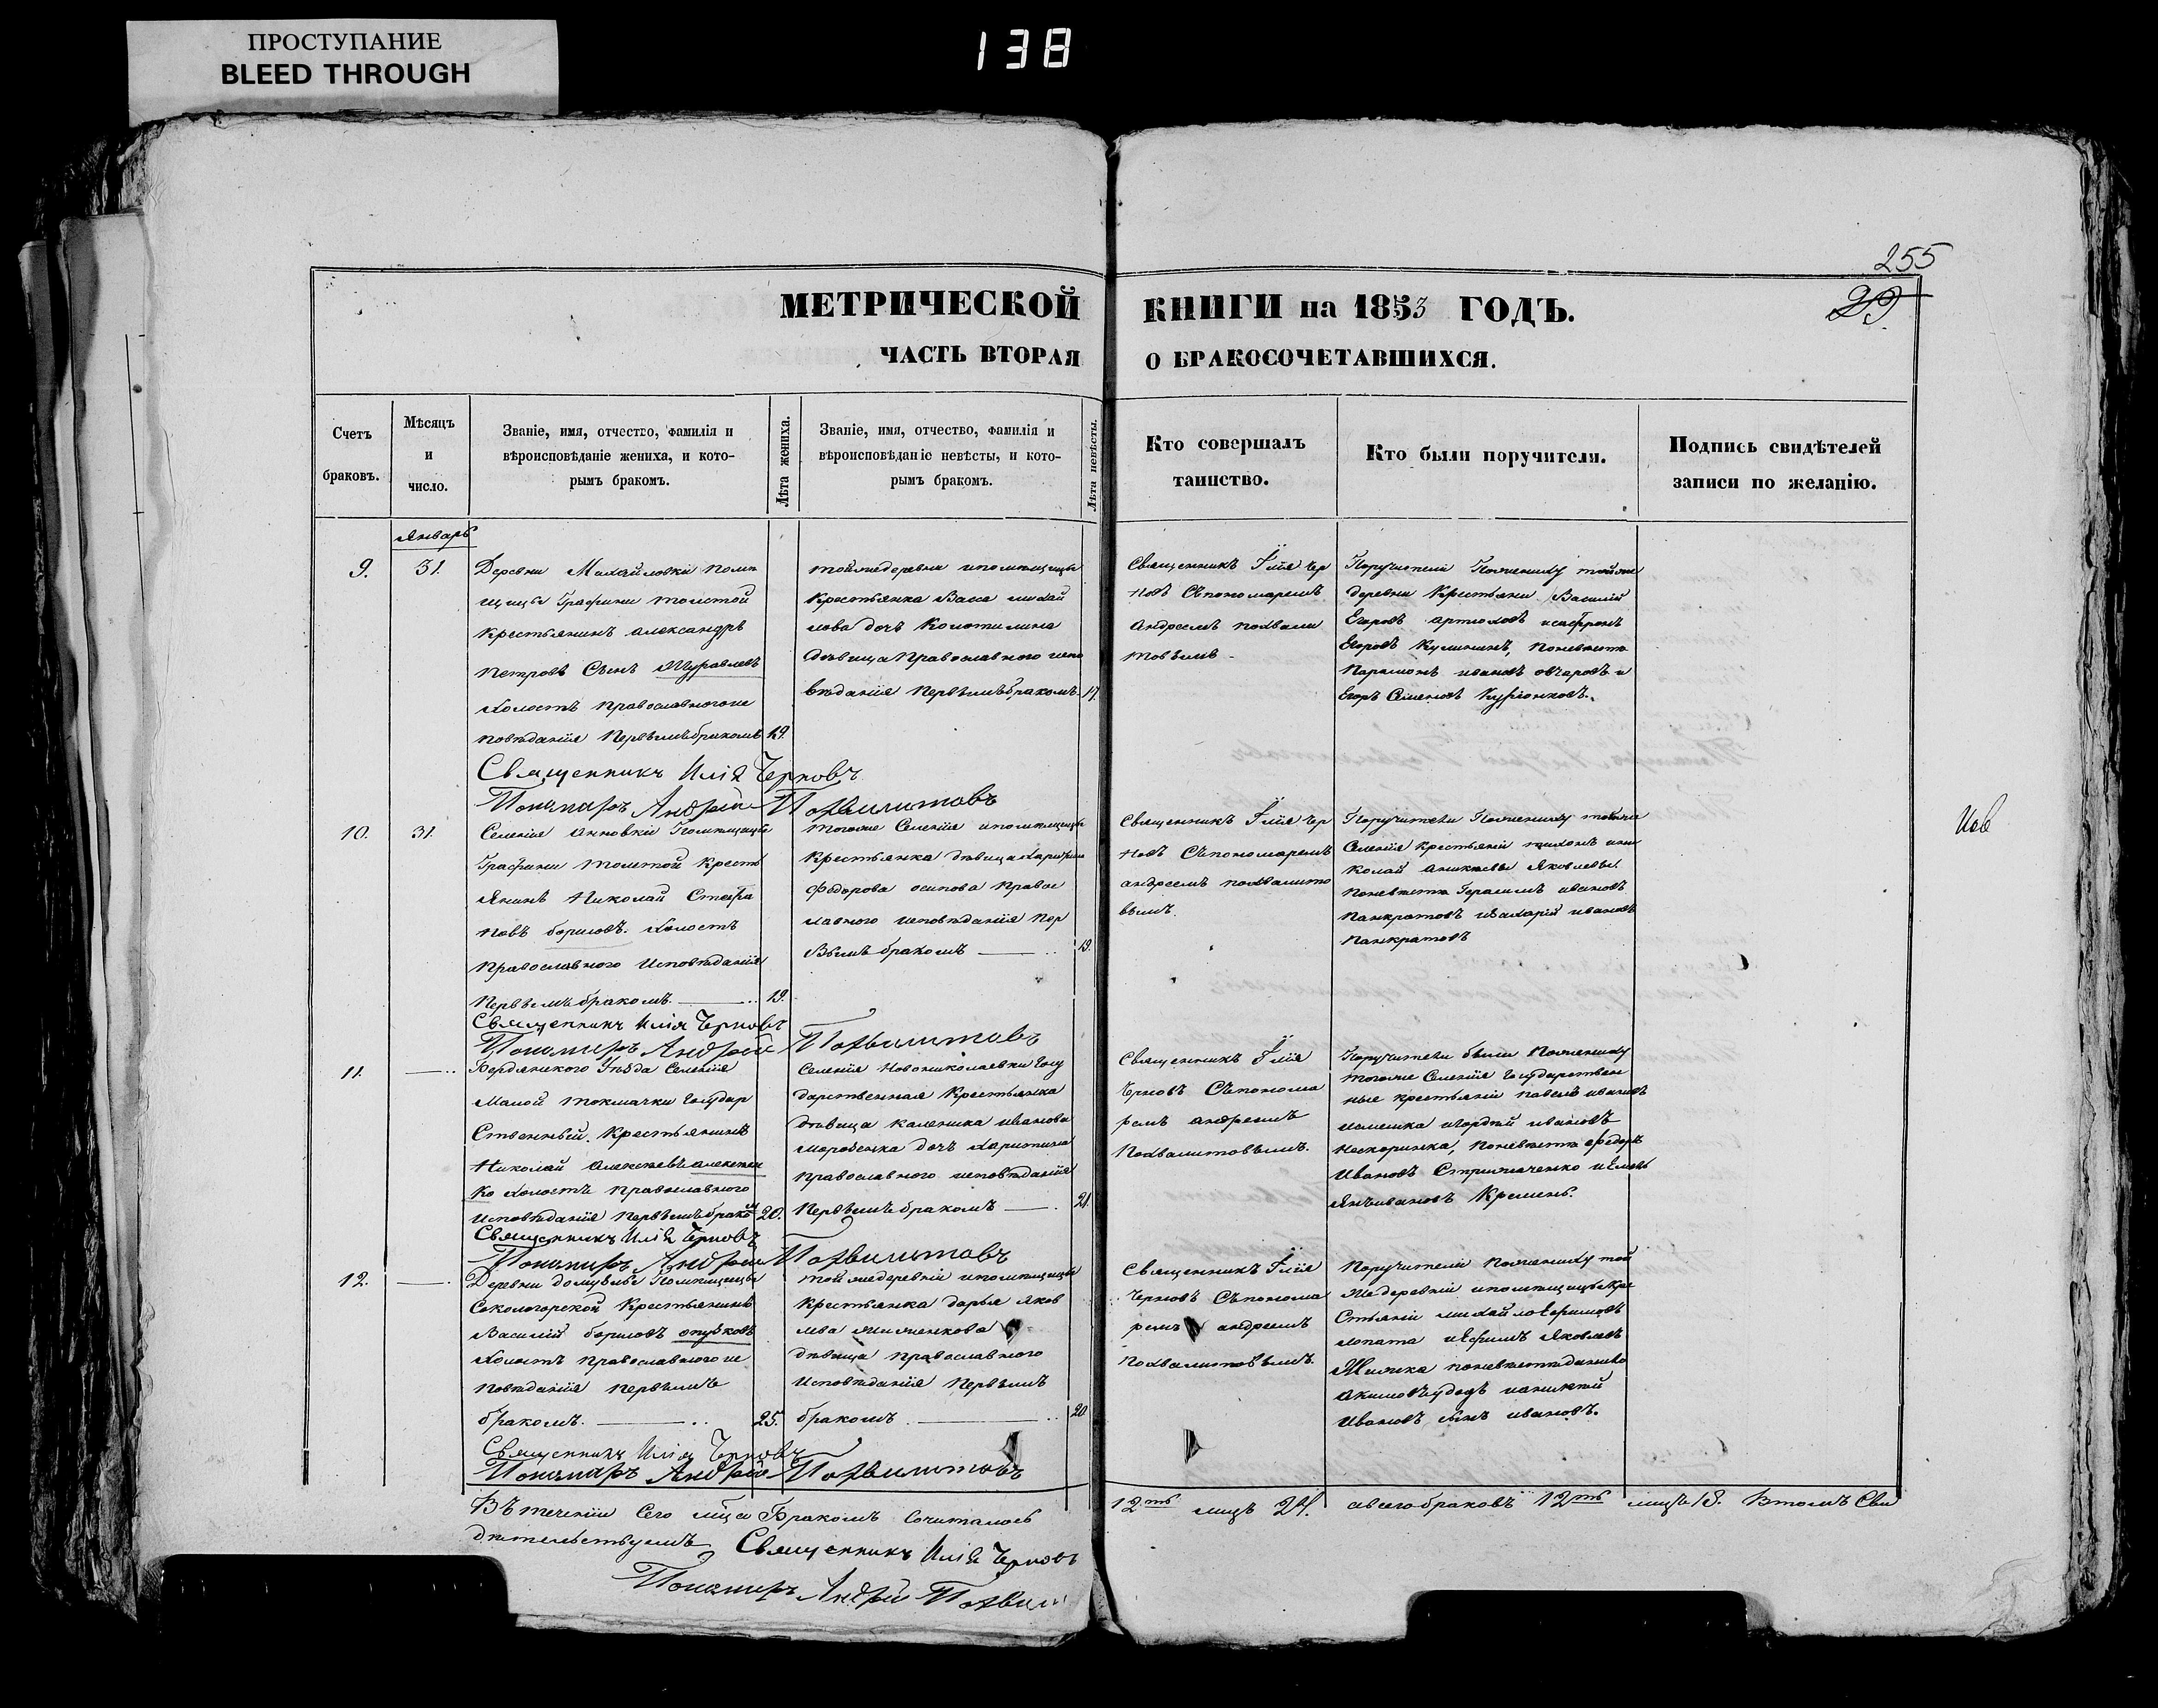 ПРОСТУПАНИЕ
BLEED THROUGH
138
255
29.
МЕТРИЧЕСКОЙ КНИГИ на 1853 ГОДЪ.
ЧАСТЬ ВТОРАЯ О БРАКОСОЧЕТАВШИХСЯ.
Счетъ браковъ.
Мѣсяцъ и число.
Званіе, имя, отчество, фамилія и
вѣроисповѣданіе жениха, и кото-
рымъ бракомъ.
Лѣта жениха.
Званіе, имя, отчество, фамилія и
вѣроисповѣданіе невѣсты, и кото-
рымъ бракомъ.
Лѣта невѣсты.
Кто совершалъ
таинство.
Кто были поручители.
Подпись свидѣтелей
записи по желанію.
Январь
9.
31.
Деревни Михайловки помѣ
щицы Графини толстой
Крестьянинъ александръ
Петровъ Сынъ Журавлевъ
холостъ православного ис
повѣданія Первымъ бракомъ 19.
тойже деревни и помѣщицы
Крестьянка Васса михай
лова дочь
дѣвица Православного испо
вѣданія первымъ бракомъ. 17.
Священникъ Ілія Чер
новъ Съ пономаремъ
Андреемъ похвали
товымъ
Поручители По женихѣ тойже
деревни Крестьяни Василій
Егоровъ
Егоровъ по невѣстѣ
Парамонъ ивановъ овчаровъ и
Егоръ Семеновъ
Священникъ Илія Черновъ
Пономарь Андрей Похвалитовъ
10.
31.
Селенія анновки Помѣщицы
Графини толстой Кресть
янинъ Николай Стефа
новъ борисовъ. холостъ
православного Исповѣданія
Первымъ бракомъ. 19.
тогоже Селенія и помѣщицы
Крестьянка дѣвица
Федорова осипова Правос
лавного исповѣданія Пер
вымъ бракомъ 19.
Священникъ Ілія Чер
новъ Съ пономаремъ
андреемъ похвалито
вымъ.
Поручители По женихѣ тогоже
Селенія крестьяни
колай Яковлевы.
По невѣстѣ Герасимъ ивановъ
Панкратовъ и Захарій ивановъ
Панкратовъ
Ков
Священникъ Илія Черновъ
Пономарь Андрей Похвалитовъ
11.
Бердянского Уѣзда Селенія
Малой токмачки Государ
Ственный Крестьянинъ
Николай алексѣевъ алексѣен
ко холостъ православного
исповѣданія первымъ бракомъ 20.
Селенія Новониколаевки Госу
дарственная Крестьянка
дѣвица иванова
дочь
православного исповѣданія
Первымъ бракомъ 21.
Священникъ Ілія
Черновъ Съ понома
ремъ андреемъ
Похвалитовымъ.
Поручители были По женихѣ
тогоже Селенія Государствен
ные крестьяни павелъ ивановъ
ивановъ
по невѣстѣ федоръ
Ивановъ
ивановъ Кремень.
Священникъ Илія Черновъ
Пономарь Андрей Похвалитовъ
12.
Деревни Помѣщицы
Сокологорской Крестьянинъ
Василій борисовъ
холостъ православного ис
повѣданія первымъ
бракомъ. 25.
той же деревни и помѣщицы
Крестьянка дарья яков
лева
дѣвица православного
Исповѣданія первымъ
бракомъ 20
Священникъ Ілія
Черновъ Съ понома
ремъ андреемъ
Похвалитовымъ.
Поручители по женихѣ той
же деревни и помѣщицы кре
стьяни михайло
лопата и Ефимъ Яковлевъ
по невѣстѣ
Ивановъ сынъ ивановъ.
Священникъ Илія Черновъ
Пономарь Андрей Похвалитовъ
Въ теченіи Сего мца Бракомъ Сочиталось 12ть лицъ 24. а всего браковъ 12ть Въ томъ Сви
дѣтельствуемъ Священникъ Илія Черновъ
Пономарь Андрей